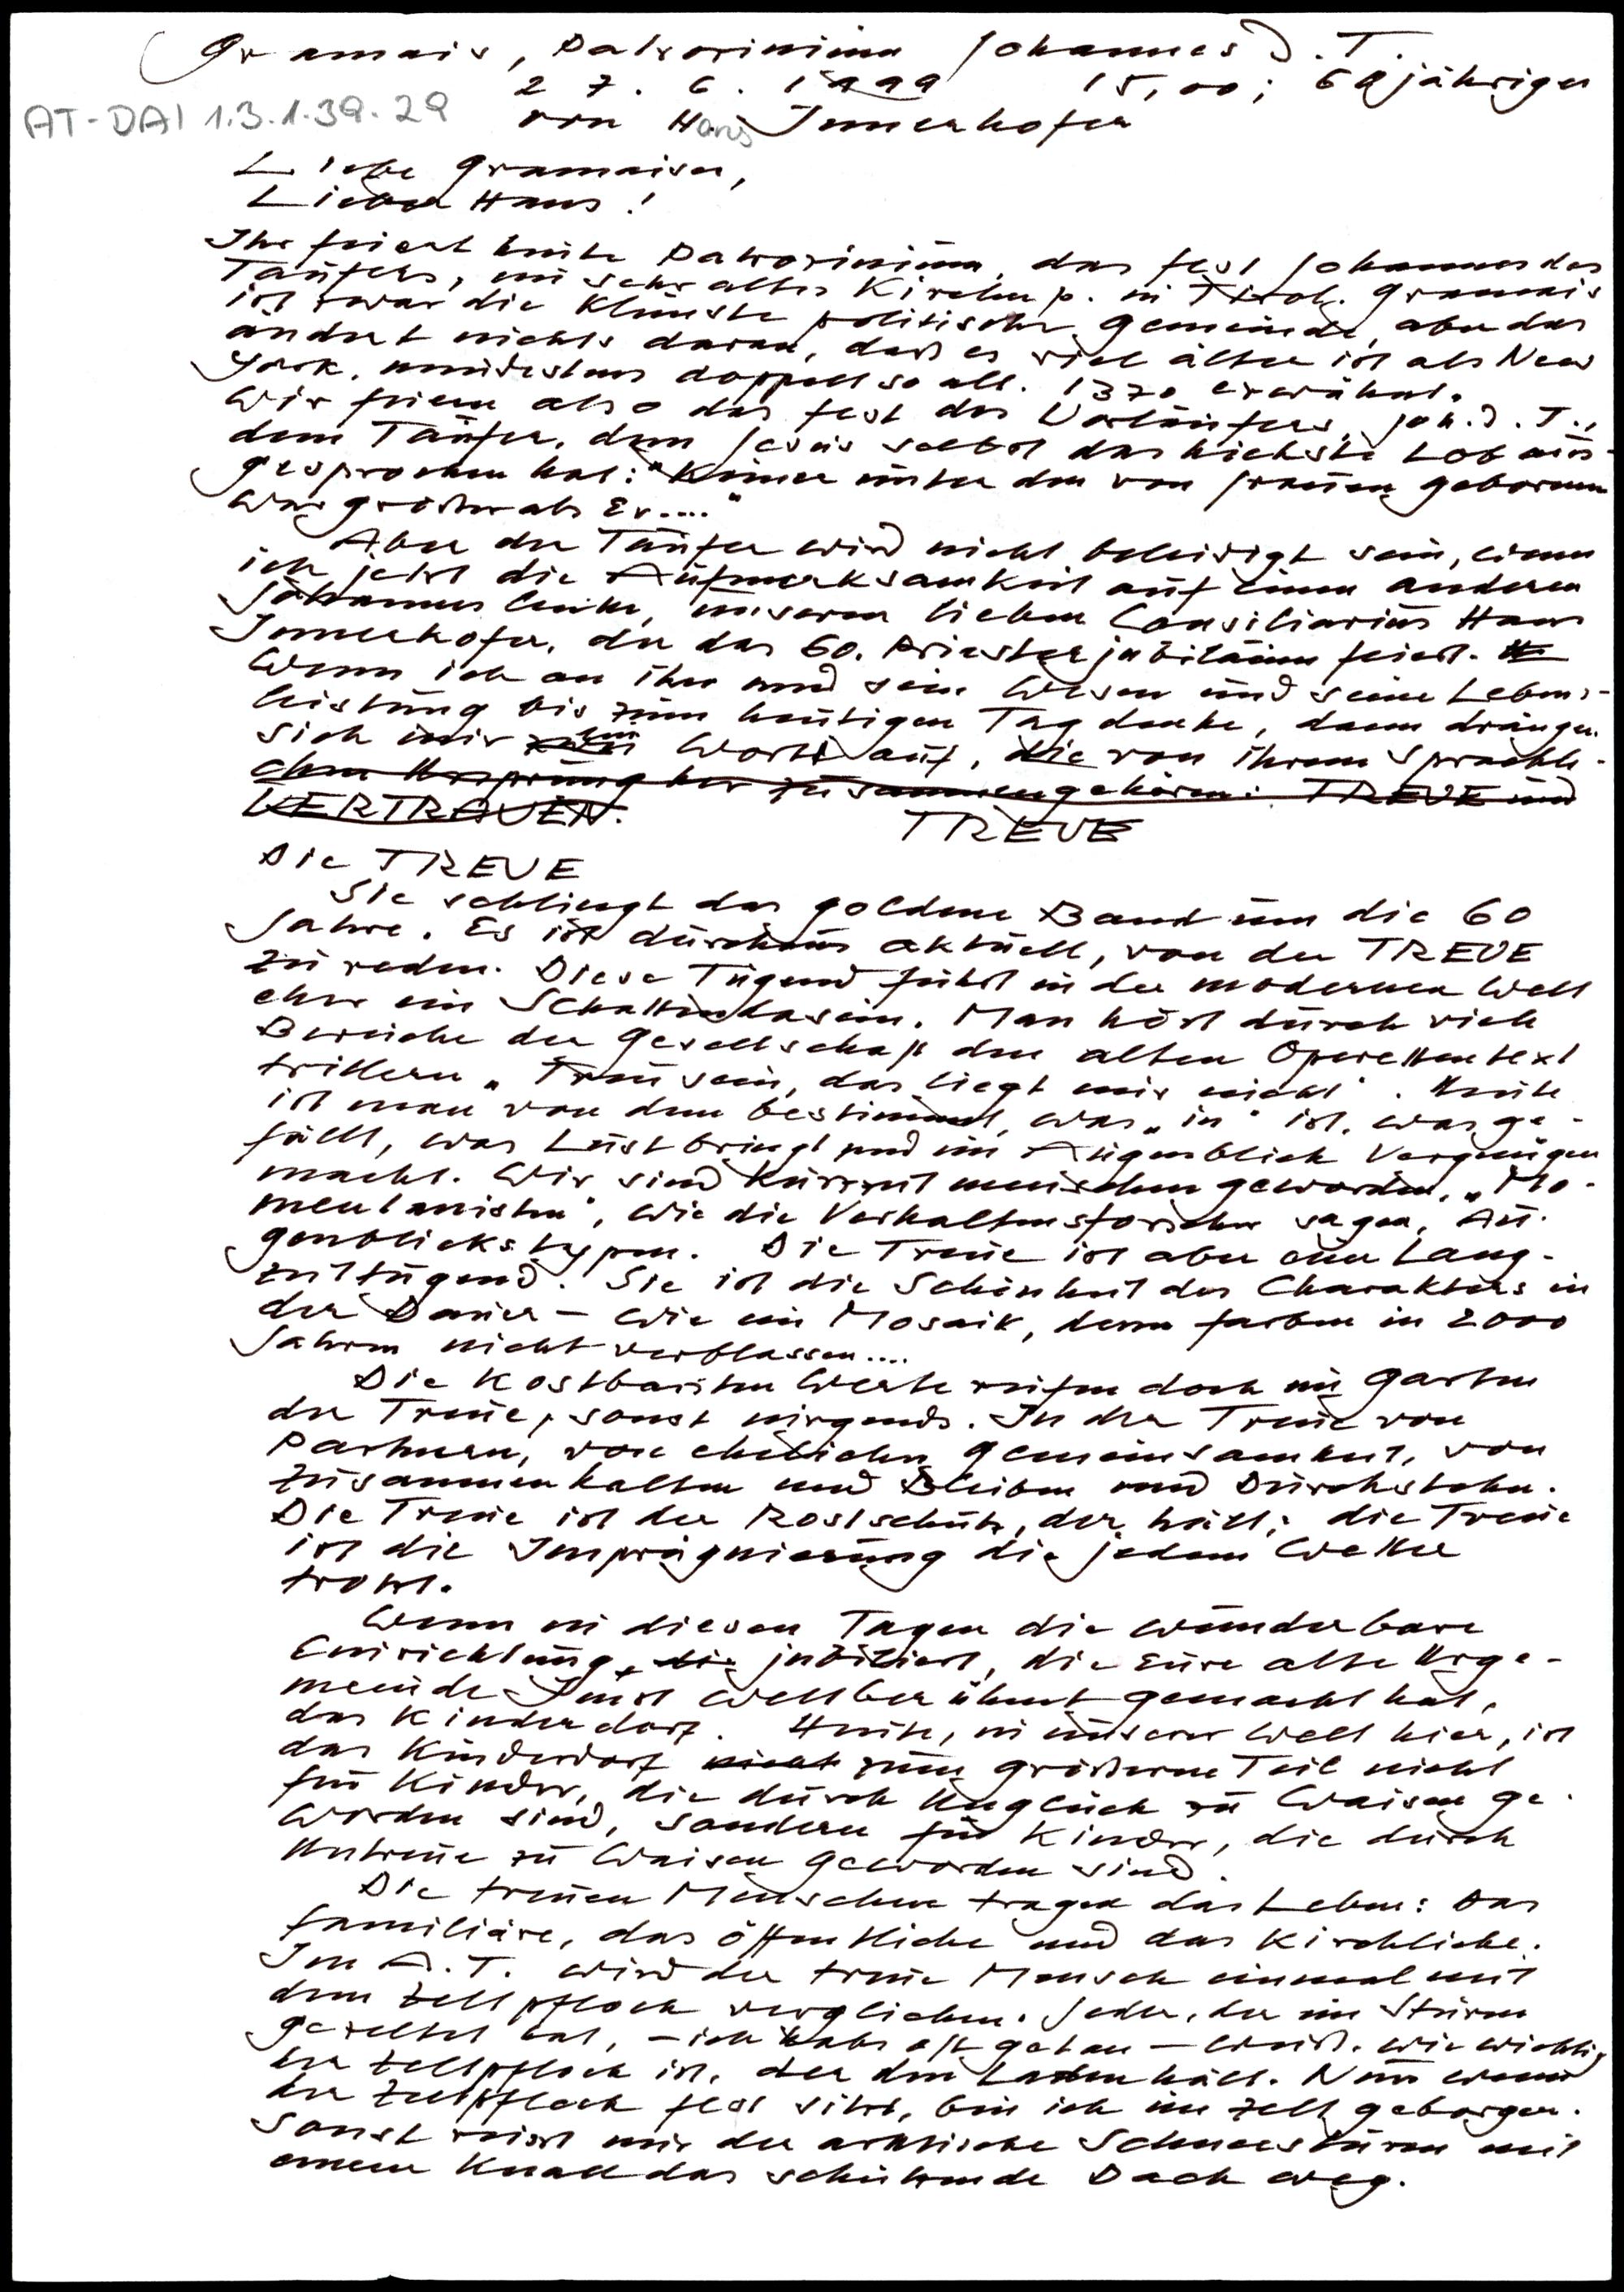 Gramais, Patrozinium Johannes d. T.
27. 6. 1999 15,00; 60jähriges
AT-DAI 1.3.1.39.29
von Hans Innerhofer
Liebe Gramaiser,
Lieber Hans!
Ihr feiert heute Patrozinium, das Fest Johannes des
Täufers, ein sehr altes Kirchenp. in Tirol. Gramais
ist zwar die kleinste politische Gemeinde, aber das
ändert nichts daran, daß es viel älter ist als New
York, mindestens doppelt so alt. 1370 erwähnt.
Wir feiern also das Fest des Vorläufers, Joh. d. T.,
dem Täufer, dem Jesus selbst das höchste Lob aus-
gesprochen hat: "Keiner unter den von Frauen geborenen
war größer als Er...."
Aber der Täufer wird nicht beleidigt sein, wenn
ich jetzt die Aufmerksamkeit auf einen anderen
Johannes lenke, unseren lieben Consiliarius Hans
Innerhofer, der das 60. Priesterjubiläum feiert.
Wenn ich an ihn und sein Wesen und seine Lebens-
leistung bis zum heutigen Tag denke, dann drängen
sich mir Worte auf, die von ihrem sprachli-
chen Ursprung her zusammengehören: TREUE und
VERTRAUEN. TREUE
Die TREUE
Sie schlingt das goldene Band um die 60
Jahre. Es ist durchaus aktuell, von der TREUE
zu reden. Diese Tugend führt in der modernen Welt
eher ein Schattendasein. Man hört durch viele
Bereiche der Gesellschaft den alten Operettentext
trillern „Treu sein, das liegt mir nicht". Heute
ist man von dem bestimmt, was „in" ist, was ge-
fällt, was Lust bringt und im Augenblick Vergnügen
macht. Wir sind Kurzzeitmenschen geworden, „Mo-
mentanisten", wie die Verhaltensforscher sagen, Au-
genblickstypen. Die Treue ist aber eine Lang-
zeittugend. Sie ist die Schönheit des Charakters in
der Dauer – wie ein Mosaik, deren Farben in 2000
Jahren nicht verblassen....
Die kostbarsten Werte reifen doch im Garten
der Treue, sonst nirgends. In der Treue von
Partnern, von ehelicher Gemeinsamkeit, von
Zusammenhalten und Bleiben und Durchstehen.
Die Treue ist der Rostschutz, der hält; die Treue
ist die Imprägnierung die jedem Wetter
trotzt.
Wenn in diesen Tagen die wunderbare
Einrichtung, die jubiliert, die Eure alte Urge-
meinde Imst weltberühmt gemacht hat,
das Kinderdorf. Heute, in unserer Welt hier, ist
das Kinderdorf nicht zum größeren Teil nicht
für Kinder, die durch Unglück zu Waisen ge-
worden sind, sondern für Kinder, die durch
Untreue zu Waisen geworden sind.
Die treuen Menschen tragen das Leben: Das
familiäre, das öffentliche und das kirchliche.
Im A. T. wird der treue Mensch einmal mit
dem Zeltpflock verglichen. Jeder, der im Sturm
gezeltet hat, – ich habs oft getan – weiß, wie wichtig
der Zeltpflock ist, der den Laden hält. Nur wenn
der Zeltpflock fest sitzt, bin ich im Zelt geborgen.
Sonst reisst mir der arktische Schneesturm mit
einem Knall das schützende Dach weg.